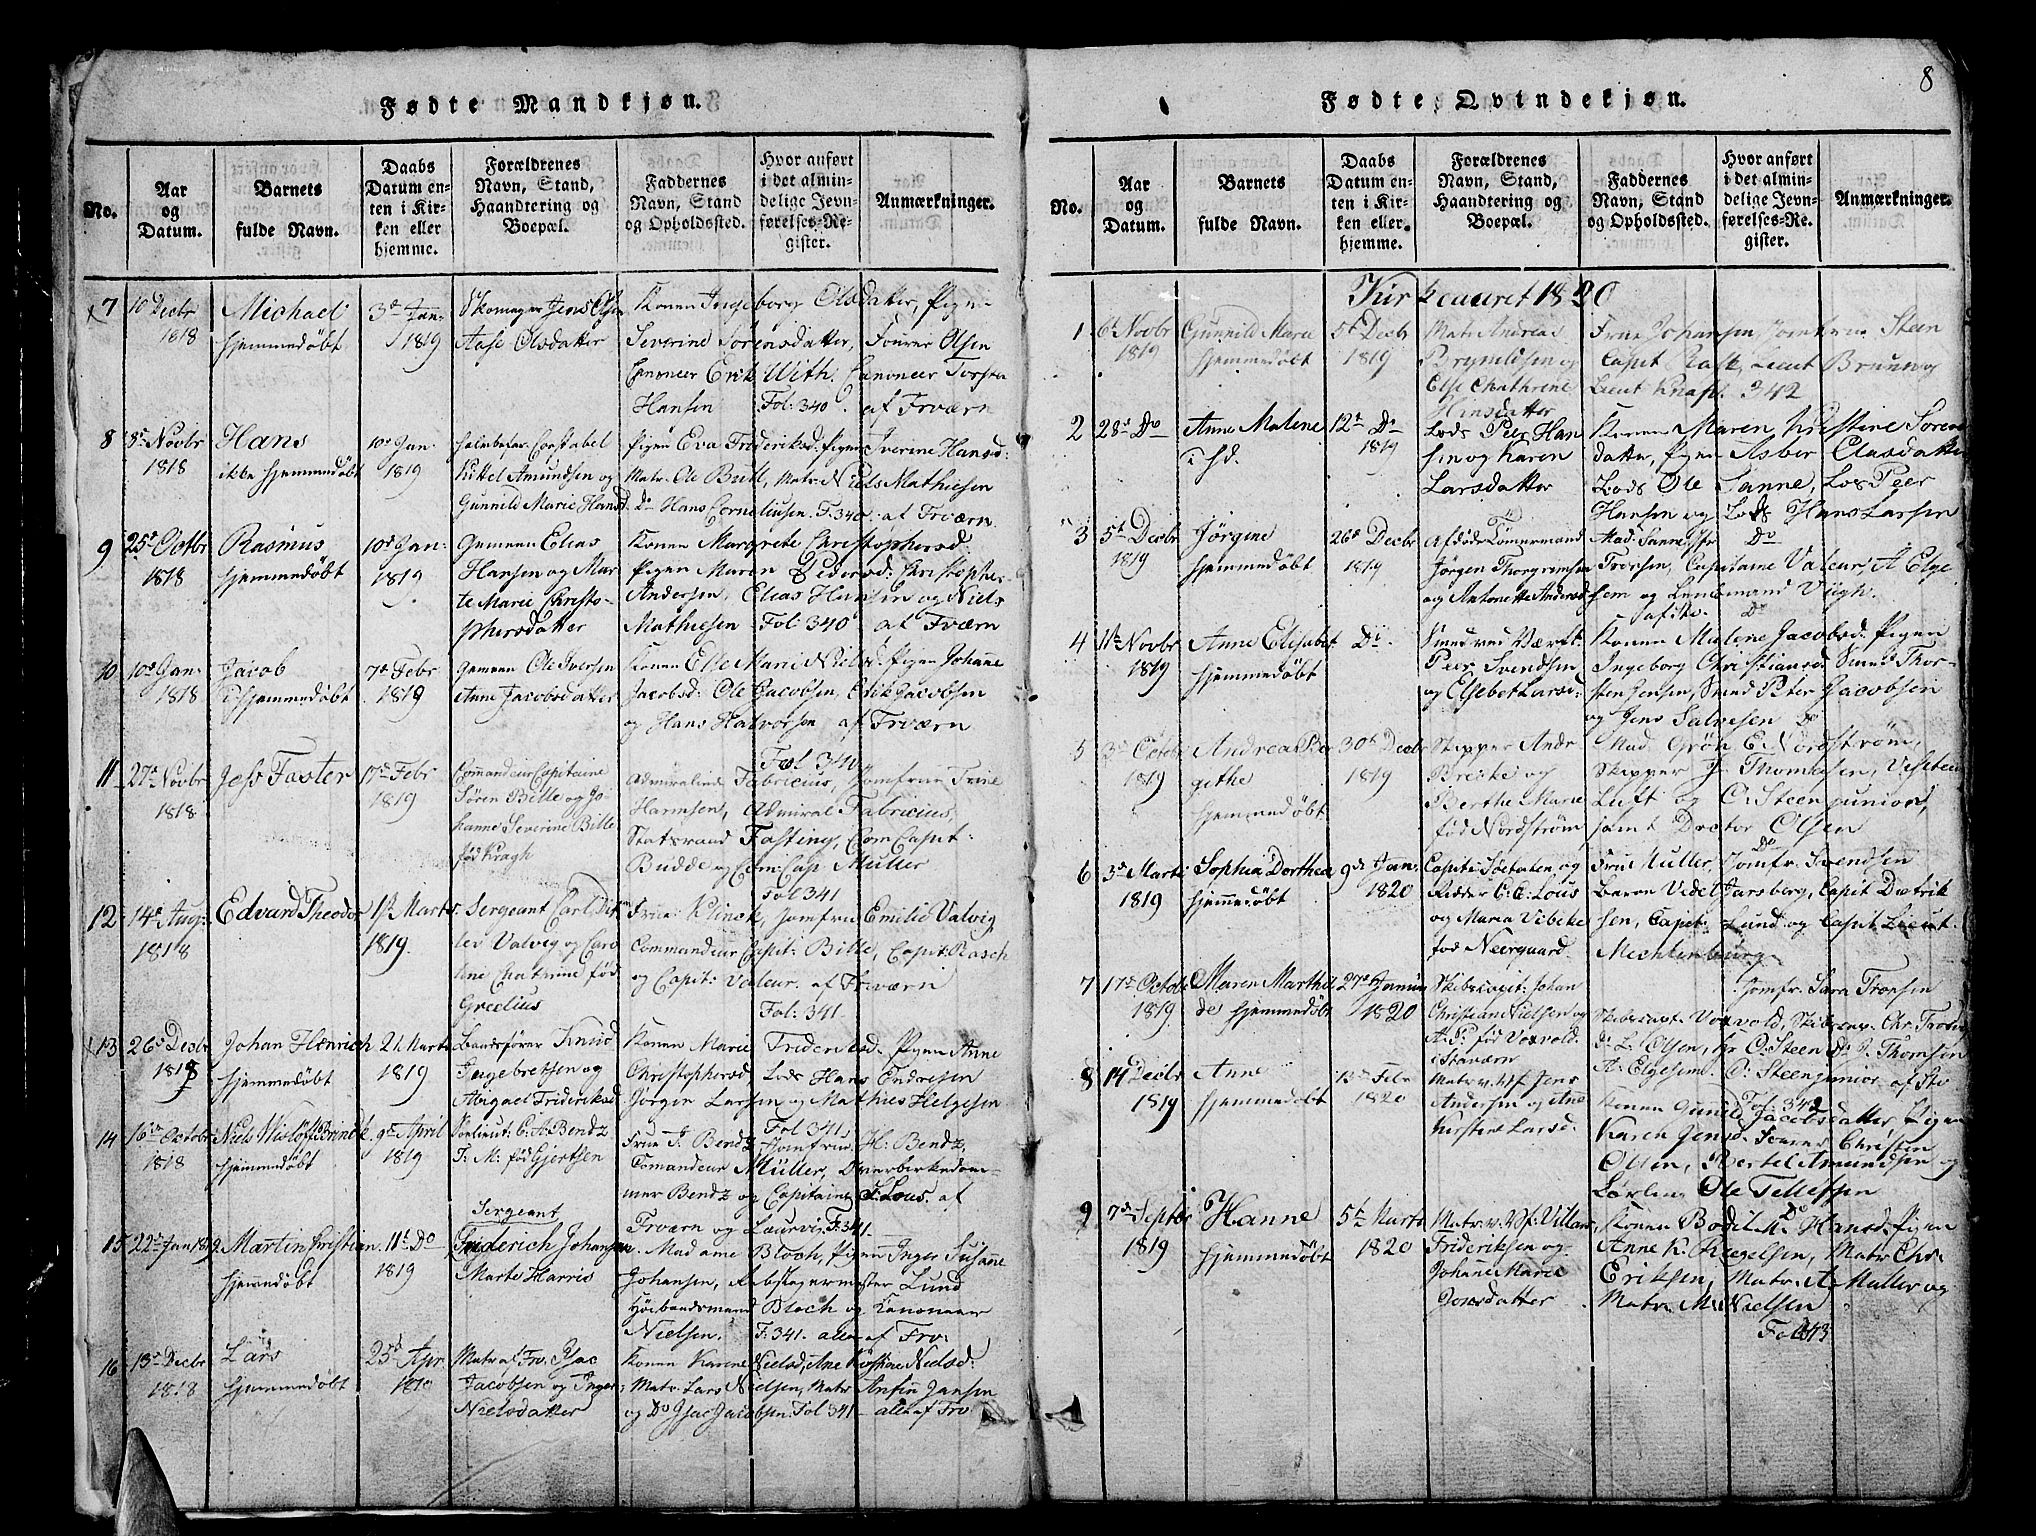 8
Fødte Mandkjøn.
No.
Aar og Datum.
Barnets fulde Navn.
Daabs Datum enten i Kirken eller hjemme.
Forældrenes Navn, Stand, Haandtering og Boepæl.
Faddernes Navn, Stand og Opholdssted.
Hvor anført i det almindelige Jevnførelses-Register.
Anmærkninger.
7 10 Decbr 1818
Michael
hjemmedøbt
3d Jan. 1819
Skomager Jens Olsen
Aase Olsdatter
Konen Ingeborg Olsdatter, Pigen
Severine Sørensdatter, Fourer Olsen
Canoneer Erik With. Canoneer Torsten
Hansen Fol: 340. af Frværn
8 8de Novbr 1818
Hans
ikke hjemmedøbt
10de Jan. 1819
Corstabel
Kittel Amundsen og
Gunnild Marie Hansd.
Pigen Eva Frideriksd: Pigen Iverine Hansd:
Matr. Ole Britt, Matr. Niels Mathiesen
Do Hans Corneliusen. F. 340. af Frværn.
9 25de Octbr 1818
Rasmus
hjemmedøbt
10de Jan. 1819
Gemeen Elias
Hansen og Mar-
te Marie Christo-
phersdatter
Konen Margrete Christophersd:
Pigen Maren Pedersd: Christopher
Andersen, Elias Hansen og Niels
Mathiesen Fol: 340 af Frværn
10 10de Jan. 1818
Jacob
hjemmedøbt
7de Febr 1819
Gemeen Ole Iversen
Anne Jacobsdatter
Konen Else Marie Nielsd. Pigen Johanne
Jacobsd: Ole Jacobsen, Erik Jacobsen
og Hans Halvorsen af Frværn
Fol 341.
11 27de Novbr 1818
Jess Faster
17de Febr 1819
Commandeur Capitaine
Søren Bille og Jo-
hanne Severine Bille
fød Kragh
Admiralinde Fabricius, Jomfrue Trine
Harmsen, Admiral Fabricius,
Statsraad Fasting, Com Capit:
Budde og Com: Cap Müller
Fol 341
12 14de Aug: 1818
Edvard Theodor
1st Marts 1819.
Sergeant Carl Dit-
lev Valvig og Caro
line Chatrine fød
Grœlius
Frue Klinck, Jomfru Emilie Valvig
Commandeur Capit: Bille, Capit: Rasch
og Capit: Valeur. af Frværn
Fol: 341.
13 26de Decbr 1818
Johan Henrich
hjemmedøbt
21. Marts 1819
Baadsfører Knud
Ingebretsen og
Abigael Frideriksd
Konen Marie Frideriksd. Pigen Anne
Christophersd Lods Hans Endresen
Jørgen Larsen og Mathies Helgesen
Fol 341,
14 16de Octobr 1818
Niels Wisløff Brinck
hjemmedøbt
9de April 1819
Prlieut: C. A. Bendz
J: M: fød Gjertsen
Frue J. Bendz Jomfrue H: Bendz,
Comandeur Müller,
Bendz og Capitaine Lous. af
Frværn og Laurvig F: 341.
15 22de Jan 1819
Martin Cristian
hjemmedøbt
11t Do 1819
Sergeant
Friderich Johansen
Marte Harris
Madame Bloch, Pigen Inger Susanne
Johansen, Rebslagermester Lund
Høibaadsmand Bloch og Kanoneer
Nielsen. F: 341. alle af Frv.
16 13de Decbr 1818
Lars
hjemmedøbt
25d Apr. 1819
Matr af Frv. Isac
Jacobsen og Inger
Nielsdatter
Konen Karine Nielsd, Ane Kirstine Nielsd:
Matr. Lars Nielsen, Matr Anfin Jansen
og Do Isac Jacobsen. Fol 341 alle af Frv
Fødte Qvindekjøn.
No.
Aar og Datum.
Barnets fulde Navn.
Daabs Datum enten i Kirken eller hjemme.
Forældrenes Navn, Stand, Haandtering og Boepæl.
Faddernes Navn, Stand og Opholdssted.
Hvor anført i det almindelige Jevnførelses-Register.
Anmærkninger.
Kirkeaaret 1820
1 6t Novbr 1819
Gunnild Marie
hjemmedøbt
5t Decbr 1819
Matr Andreas
Brynildsen og
Else Chathrine
Hansdatter
Frue Johansen, Jomfrue Steen
Capit Rask, Lieut Bruun og
Lieut Knaph. 342
2 28de Do
Anne Malene
12te Do 1819
Lods Peer Han
sen og Karen
Larsdatter
Konen Maren Kristine Søren
datter, Pigen Asber Olasdatter
Lods Ole Sanne, Los Peer
Hansen og Lods Hans Larsen
3 5t Decbr 1819
Jørgine
hjemmedøbt
26de Decbr 1819
Afdøde Tømermand
Jørgen Thorgrimsen
og Antonette Andersd
Mad: Sanne, Do
Tronsen, Capitaine Valeur, A Elge
sem og Lensmand Viigh.
Do
4 11te Novbr 1819
Anne Elisabet
hjemmedøbt
Do.
Peer Svendsen
og Elsebet Larsd:
Konen Malene Jacobsd. Pigen
Ingeborg Christiansd. Thor-
sten Jensen, Peter Jacobsen
og Jens Salvesen Do
5 3de Octobr 1819
Andrea Ber
githe
hjemmedøbt
30te Decbr 1819
Skipper Andr.
Breike og
Berthe Marie
fød Nordstrøm
Mad. Grøn E. Nordstrøm,
Skipper J Thomasen,
Luft og O. Steen junior,
samt Doctor Olsen
Do
6 3de Marts 1819
Sophia Dorthea
hjemmedøbt
9de Jan: 1820
Capit: i Søetaten og
Ridder C: C: Lous
og Maria Vibeke
fød Neergaard.
Frue Müller, Jomfr. Svendsen
Baron Vedel Jarsberg, Capit Diedrik
sen, Capit: Lund og Capit Lieut.
Mechlenburg
7 17de Octobr 1819.
Maren Marthe
hjemmedøbt
27de Januar 1820
Skibscapit: Johan
Christian Nielsen og
A: P: fød Voxvold.
i Staværn
Jomfr. Sara Tronsen
Skibscapt. Voxvold, Skibscap. Chr.
Do L: Olsen, Kr O: Steen Do J. Thomsen
A: Elgesem. O: Steen junior af Stv
Fol: 342
8 14 Decbr 1819
Anne
hjemmedøbt
13de Febr 1820
Matr. v. Vf. Jens
Andersen og Ane
Kirstine Larsd.
Konen Gunild Jacobsdatter, Pigen
Karen Jensd. Fourer Christen
Olsen, Bertel Amundsen og
Lærling Ole Tellefsen
Do
9 7de Septbr 1819
Hanne
hjemmedøbt
5t Marts 1820
Matr. v. Vf: Villars
Frideriksen og
Johanne Marie
Jonsdatter
Konen Bodil M: Hansd. Pigen
Anne K. Regelsen, Matr Chr.
Eriksen, Matr: A Müller og
Matr M: Nielsen
Fol 343